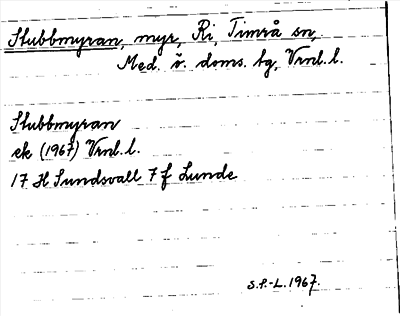 Stubbmyran, myr, Ri, Timrå sn,
Med. v. doms. tg, Vrnl. l.
Stubbmyran
ek (1967) Vrnl. l.
17 H Sundsvall 7 f Lunde
S.P.-L. 1967.